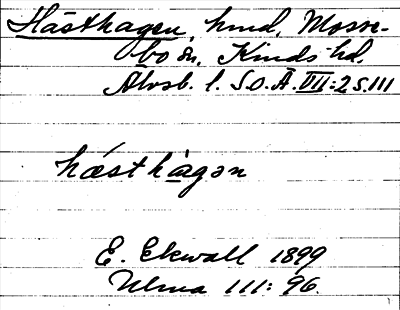 Hästhagen, hmd, Mosse-
bo sn, Kinds hd.
Älvsb. l. S.O.Ä. VII:2 s. 111
hǽsthàgən
E. Ekwall 1899
Ulma 111: 96.